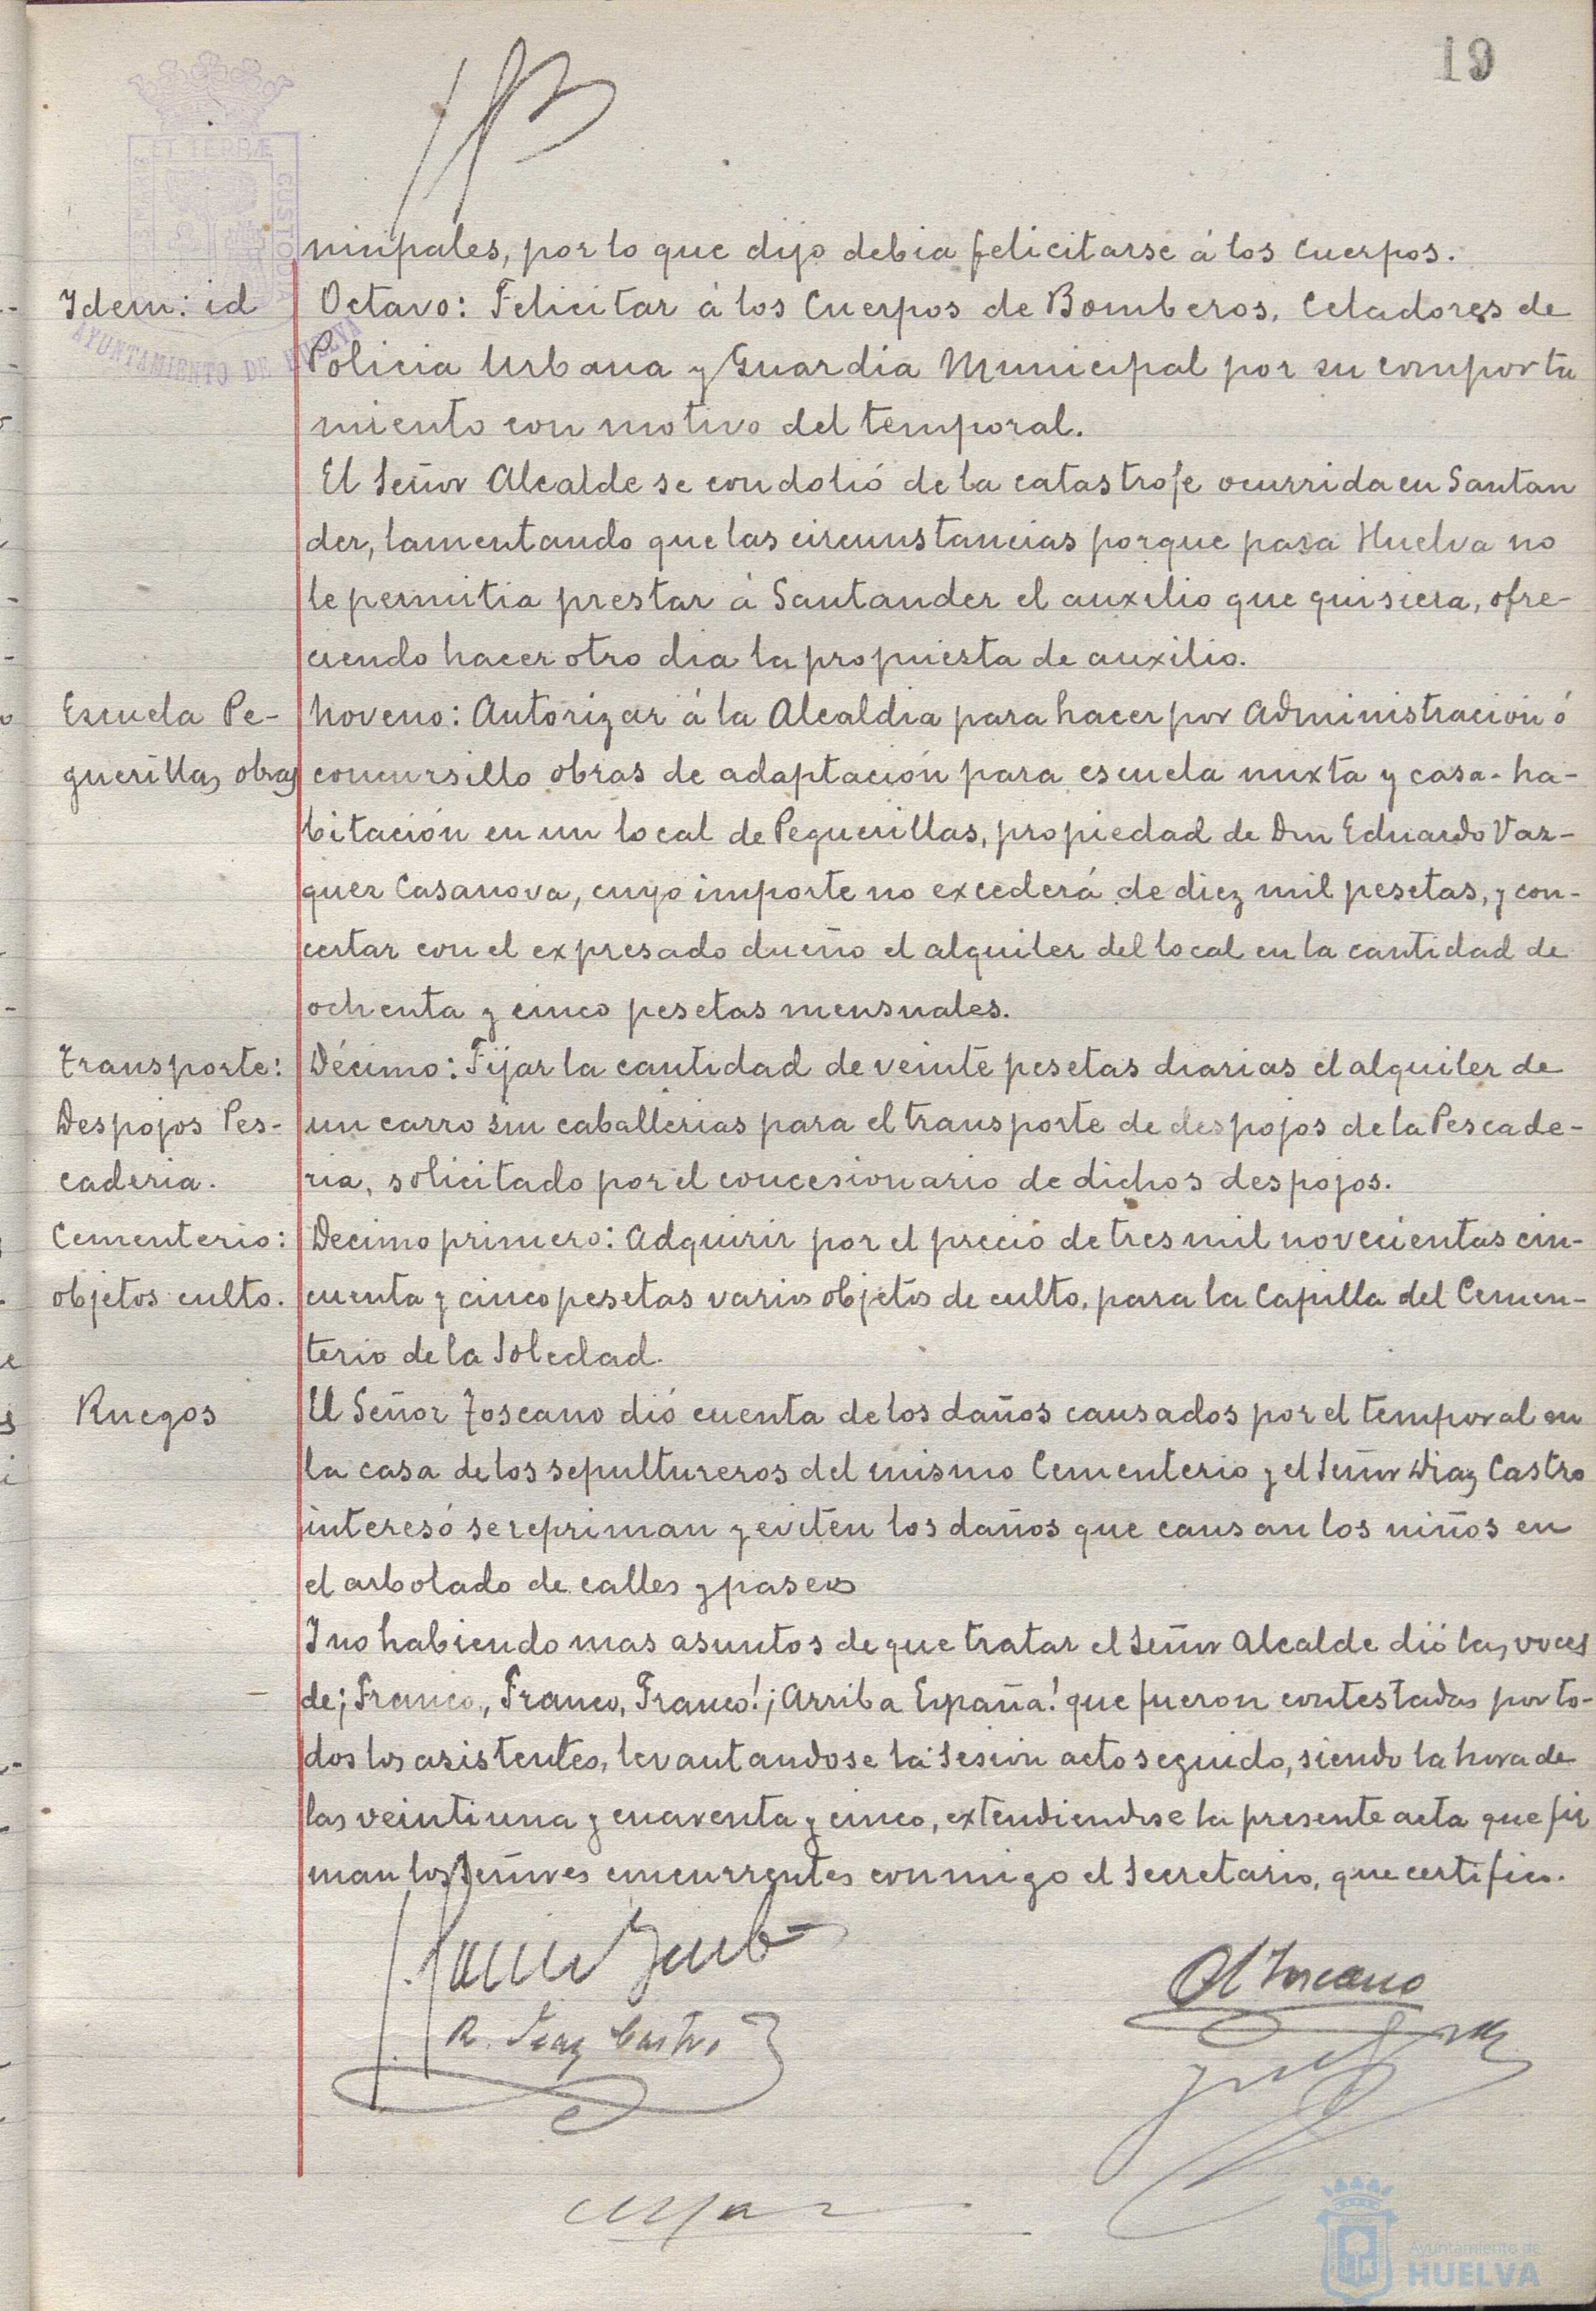 19
nicipales, por lo que dijo debia felicitarse á los Cuerpos.
Idem: id
Octavo: Felicitar á los Cuerpos de Bomberos, Celadores de
Policia Urbana y Guardia Municipal por su comporta
miento con motivo del temporal.
El Señor Alcalde se condolió de la catastrofe ocurrida en Santan
der, lamentando que las circunstancias porque pasa Huelva no
le permitia prestar á Santander el auxilio que quisiera, ofre-
ciendo hacer otro dia la propuesta de auxilio.
Escuela Pe-
guerillas, obras
Noveno: Autorizar á la Alcaldia para hacer por Administración ó
concursillo obras de adaptación para escuela mixta y casa-ha-
bitación en un local de Peguerillas, propiedad de Don Eduardo Vaz-
quez Casanova, cuyo importe no excederá de diez mil pesetas, y con-
certar con el expresado dueño el alquiler del local en la cantidad de
ochenta y cinco pesetas mensuales.
Transporte:
Despojos Pes-
caderia.
Décimo: Fijar la cantidad de veinte pesetas diarias el alquiler de
un carro sin caballerias para el transporte de despojos de la Pescade-
ria, solicitado por el concesionario de dichos despojos.
Cementerio:
objetos culto.
Decimo primero: Adquirir por el precio de tres mil novecientas cin-
cuenta y cinco pesetas varios objetos de culto, para la Capilla del Cemen-
terio de la Soledad.
Ruegos
El Señor Toscano dió cuenta de los daños causados por el temporal en
la casa de los sepultureros del mismo Cementerio y el Señor Diaz Castro
interesó se repriman y eviten los daños que causan los niños en
el arbolado de calles y paseos
Y no habiendo mas asuntos de que tratar el Señor Alcalde dió las voces
de ¡Franco, Franco, Franco! ¡Arriba España! que fueron contestadas por to-
dos los asistentes, levantandose la sesión acto seguido, siendo la hora de
las veintiuna y cuarenta y cinco, extendiendose la presente acta que fir
man los Señores concurrentes conmigo el Secretario, que certifico.
R. Diaz Castro
Toscano
ET TERRÆ CUSTODIA
AYUNTAMIENTO DE HUELVA
Ayuntamiento de
HUELVA